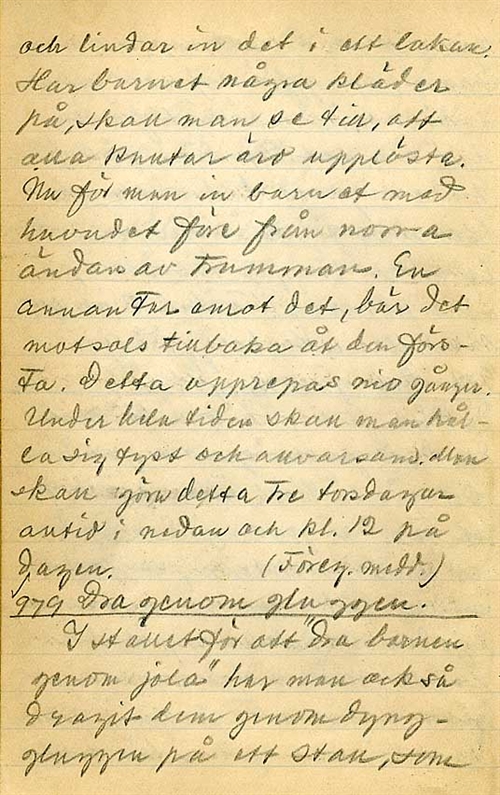 och lindar in det i ett lakan.
Har barnet några kläder
på, skall man se till, att
alla knutar äro upplösta.
Nu för man in barnet med
huvudet före från norra
ändan av trumman. En
annan tar emot det, bär det
motsols tillbaka åt den förs-
ta. Detta upprepas nio gånger.
Under hela tiden skall man hål-
la sig tyst och allvarsam. Man
skall göra detta tre torsdagar
alltid i nedan och kl. 12 på
dagen. (Föreg. medd.)
979 Dra genom gluggen.
I stället för att "dra barnen
genom jola" har man också
dragit dem genom dyng-
gluggen på ett stall, som